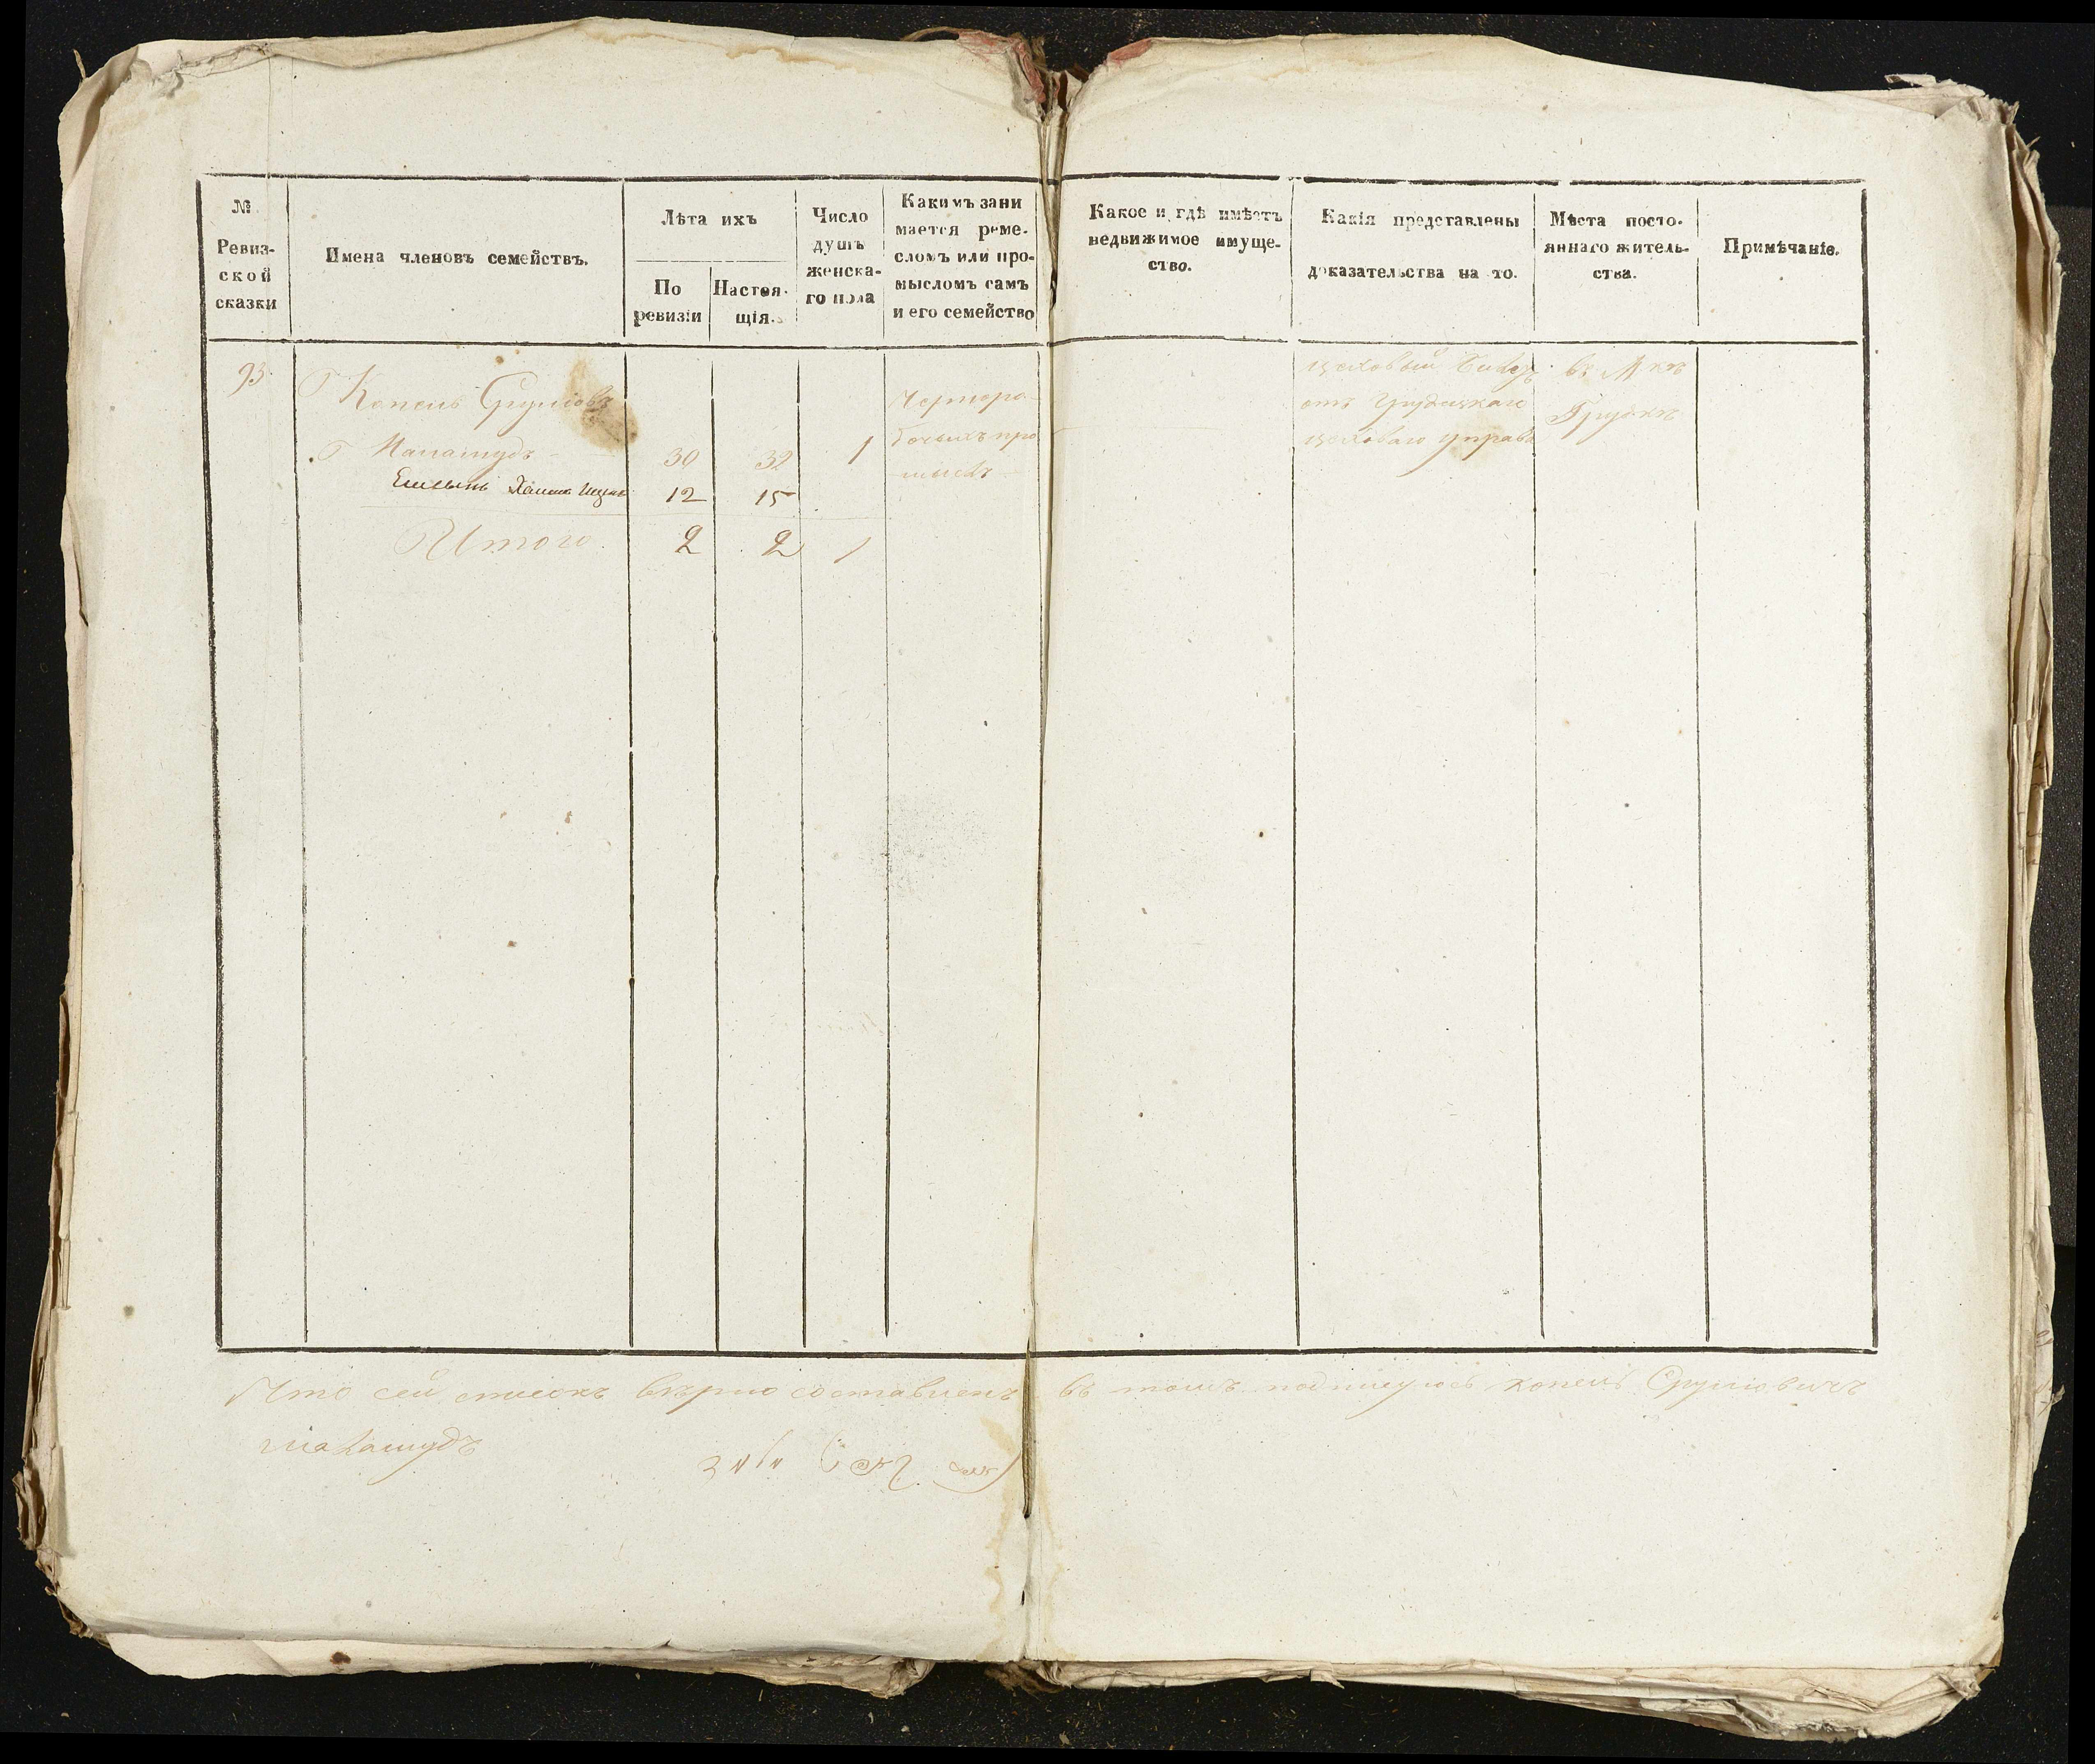 № Ревиз-ской сказки
Имена членовъ семействъ.
Лѣта ихъ
По ревизіи
Настоя-щія.
Число душъ женска-го пола
Какимъ зани
мается реме-
сломъ или про-
мысломъ самъ
и его семейство
Какое и гдѣ имѣетъ
недвижимое имуще-
ство.
Какія представлены
доказательства на то.
Мѣста посто-
яннаго житель-
ства.
Примѣчаніе.
93
Копель Срулiовъ
Малашудъ 30 32 1
12 15
Итого 2 2 1
Чернора-
бочимъ про
мысл
цеховый
отъ
цеховаго управы
въ М-кѣ
Что сей списокъ вѣрно составленъ въ томъ подписуюсь Копель Сруліовичъ
Малашудъ